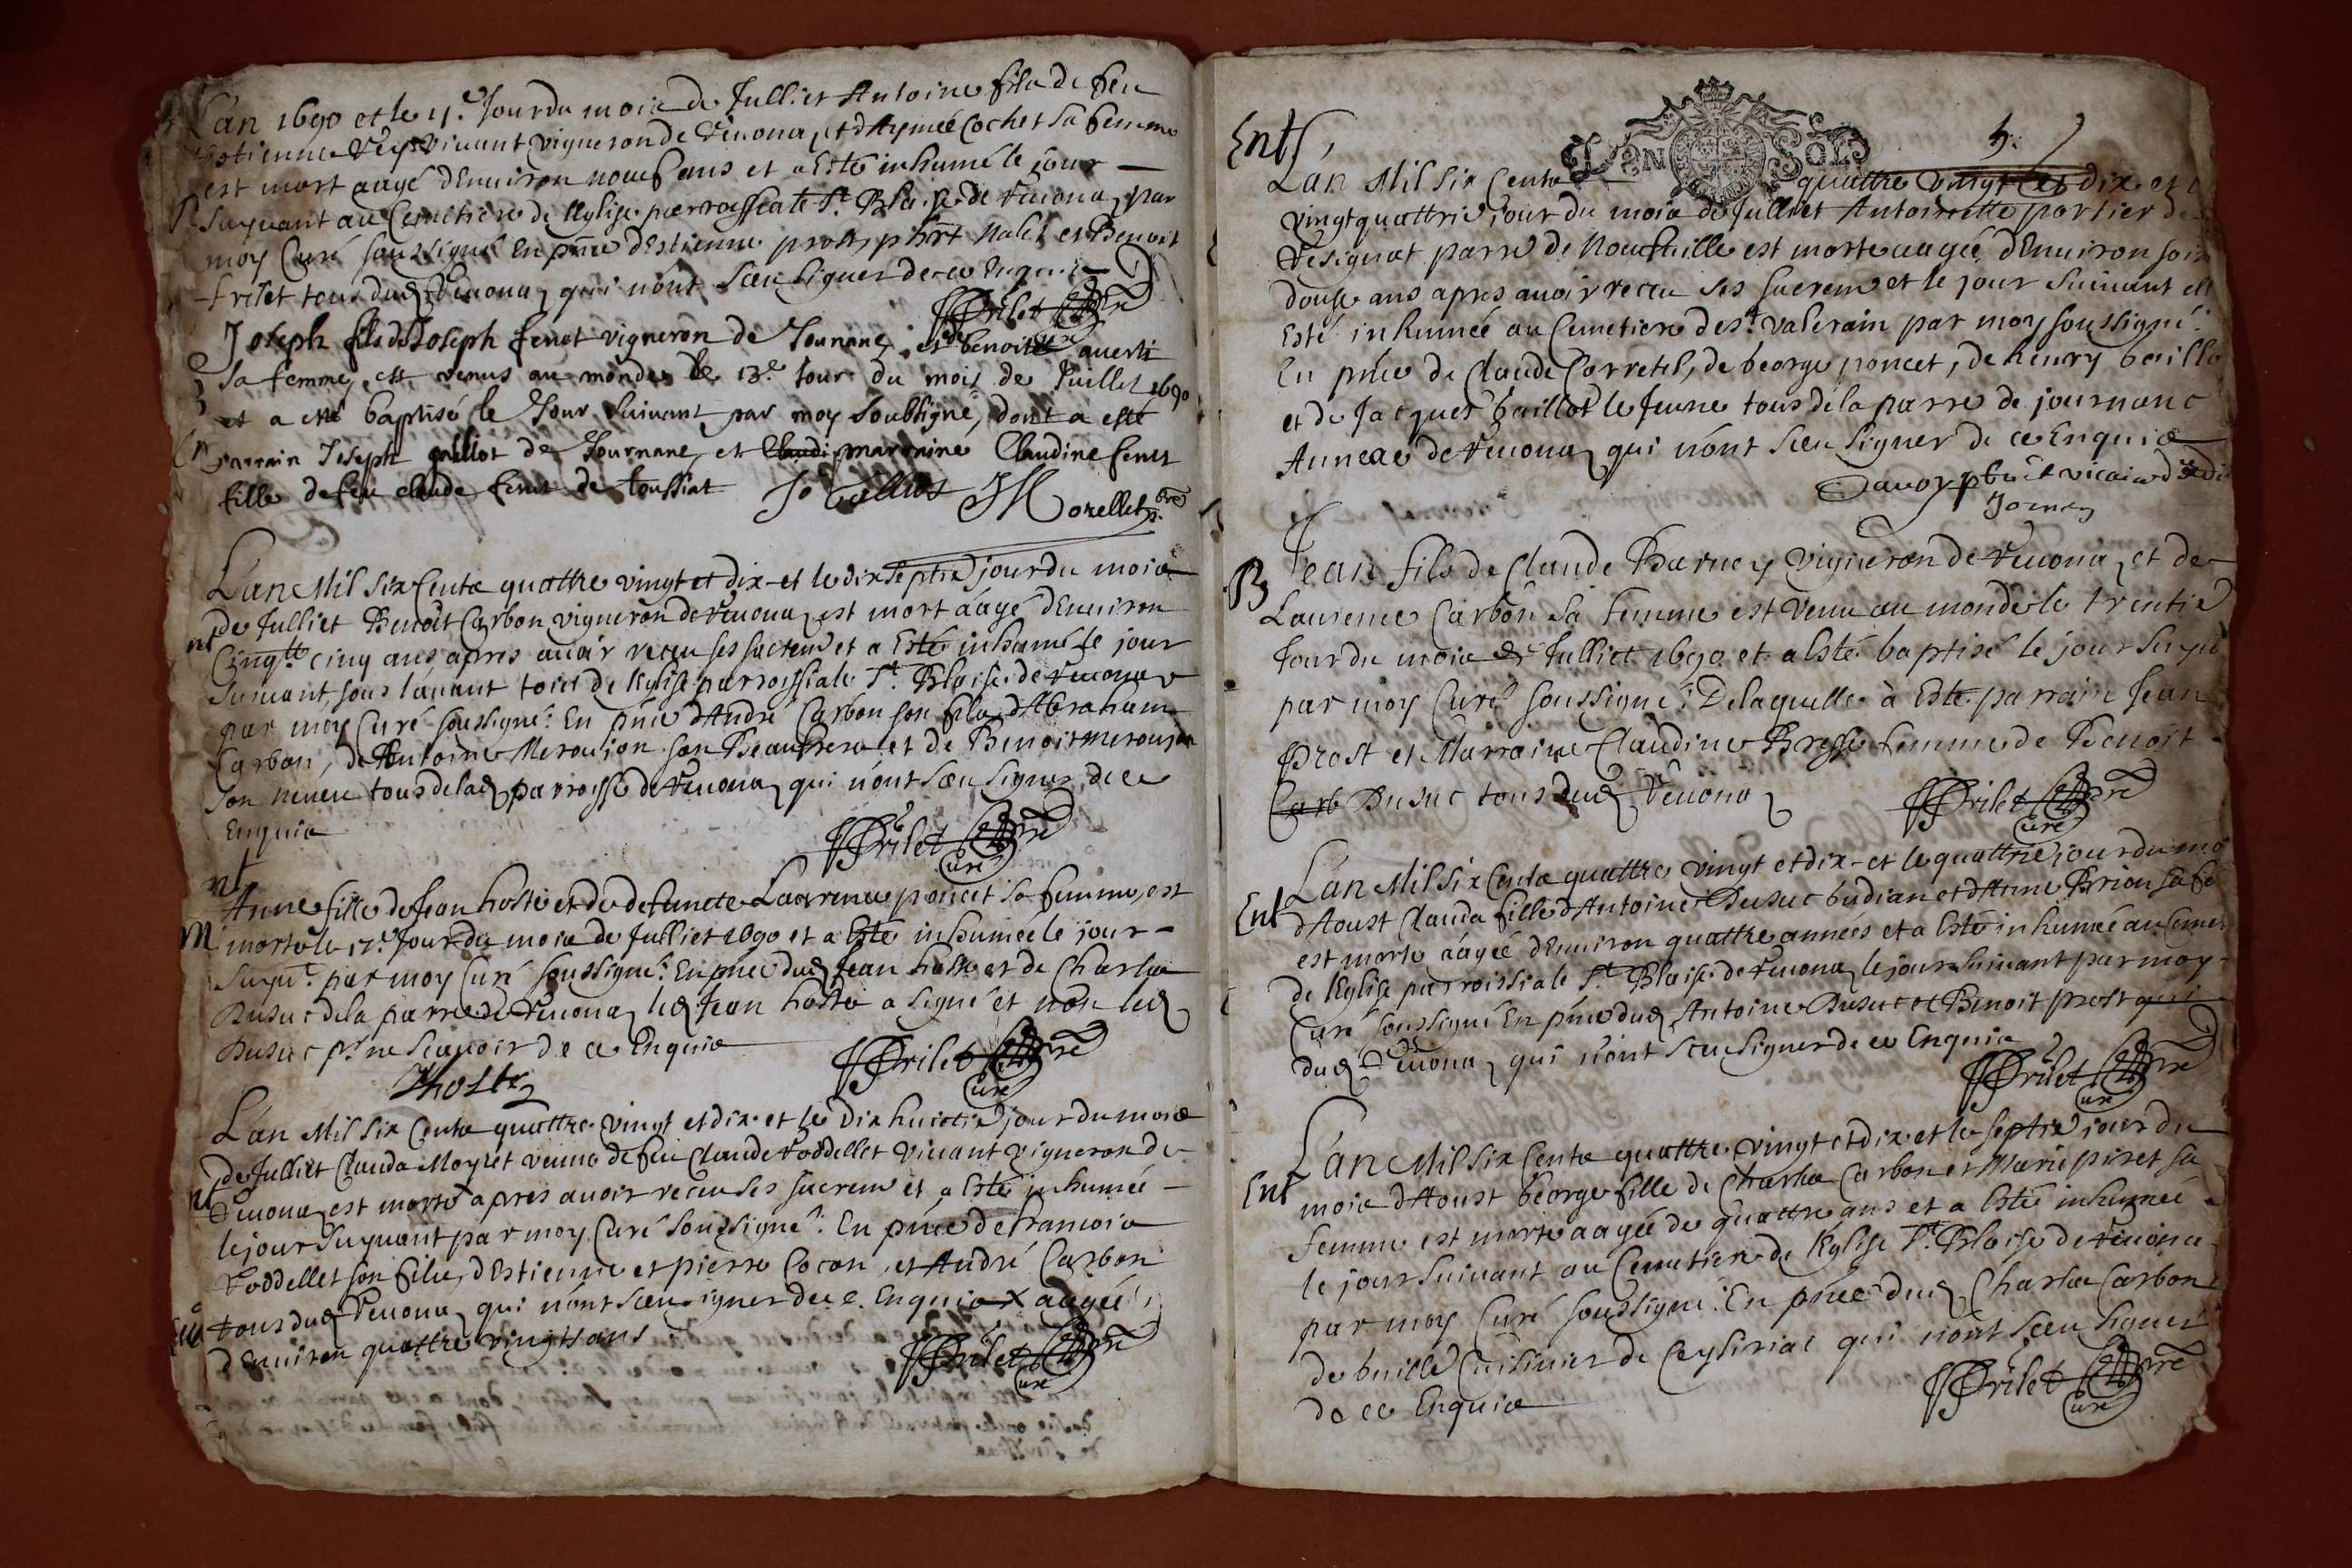 L'an 1690 et le 11.e Jour du mois de Julliet Antoine fils de feu
Estienne Vey vivant vigneron de Vcuona, et d'Aymée Cochet sa femme
est mort aagé d'Enuiron neuf ans et a Esté inhumé le jour
Suyuant au Cemetiere de l'eglise parroissiale St. Blaise de Vcuona, par
moy Curé soussigné En pñce d'Estienne prost, phbrt Nalet et Benoit
frilet tous dud Vcuona, qui n'ont sceu signer de ce Enquis
JFrilet Pbre
Joseph fils de Joseph feret vigneron de Journans, et de benoite auerti
sa femme, est venus au monde le 13.e Jour du mois de Juillet 1690
et a esté baptisé le Jour suivant par moy soubsigné, dont a esté
parrain Joseph paillot de Journans, et Claudi marraine Claudine feret
fille de feu claude feret de toussiat Jo Paillot JMorellet pbre
L'an Mil Six Cents quattre vingt et dix et le dix septie jour du mois
de Julliet Benoit Carbon vigneron de Vcuona, est mort aagé d'Enuiron
Cinqtte cinq ans apres auoir receu ses sacrem et a Esté inhumé le jour
Suiuant, sous l'auant toict de l'eglise parroissiale St. Blaise de Vcuona
par moy Curé soussigné. En pñce d'André Carbon son fils, d'Abraham
Carbon, de Antoine Merousion son Beaufrere et de Benoit merousion
son neueu tous de lad parroisse de Vcuona, qui n'ont sceu signer de ce
Enquis
JFrilet Pbre
Curé
nt
Anne fille de Jean hoste et de defuncte Laurence poncet sa femme, est
m morte le 17.e Jour du mois de Julliet 1690 et a Esté inhumée le jour
Suyut. par moy Curé soussigné. En pñce dud Jean hoste et de Charles
Dusuc de la parre de Vcuona, led Jean hoste a signé et non led
Dusuc pr ne scauoir de ce Enquis
JFrilet Pbre
Jhoste Curé
L'an Mil Six Cents quattre vingt et dix et le Dix huictie jour du mois
de Julliet Clauda Moyret veuue de feu Claude Voddellet viuant vigneron de
nt Vcuona, est morte apres auoir receu ses sacrem et a Esté inhumée
le jour Suyuant par moy Curé soussigné. En pñce de francois
Voddellet son fils, d'Estienne et pierre Cocon, et André Carbon
tous dud Vcuona, qui n'ont sceu signer de ce Enquis X aagée
d'Enuiron quattre vingts ans
JFrilet Pbre
Curé
GEN SOLS
5.
Ent
L'an Mil Six Cents quattre vingt et dix et le
vingtquattrie jour du mois de Julliet Antoinette portier de
Vesignat parre de Neufuille est morte aagée d'Enuiron soix
douse ans apres auoir receu ses sacrem et le jour suiuant ell
Esté inhumée au Cemetiere de St. Valerain par moy soussigné.
En pñce de Claude Carretel, de George poncet, de henry baillo
et de Jacques baillot le Jeune tous de la parre de journans
Annexe de Vcuona, qui n'ont sceu signer de ce Enquis
Dauoy pbre et vicaire
Jornas
B Jean fils de Claude Barney vigneron de Vcuona, et de
Laurence Carbon sa femme est venu au monde le trentie
Jour du mois de Julliet 1690 et a Esté baptisé le jour Suyut
par moy Curé soussigné. Delaquelle a Esté parrain Jean
Prost et Marraine Claudine Bresse femme de Benoit
Carb Dusuc tous dud Vcuona
JFrilet Pbre
Curé
L'an Mil Six Cents quattre vingt et dix et le quattrie jour du mo
Ent d'Aoust Clauda fille d'Antoine Dusuc budian et d'Anne Brion sa fe
est morte aagée d'Enuiron quattre années et a Esté inhumée au Cemet
de l'eglise parroissiale St. Blaise de Vcuona, le jour suiuant par moy
Curé soussigné En pñce dud Antoine Dusuc et Benoit prost qui
dud Vcuona, qui n'ont sceu signer de ce Enquis
JFrilet Pbre
Curé
L'an Mil Six Cents quattre vingt et dix et le septie jour du
Ent mois d'Aoust George fille de Charles Carbon et Marie piret sa
femme est morte aagée de quattre ans et a Esté inhumée
le jour suiuant au Cemetiere de l'eglise St. Blaise de Vcuona
par moy Curé soussigné. En pñce dud Charles Carbon
de buille Cuisinier de Ceyseriat qui n'ont sceu signer
de ce Enquis
JFrilet Pbre
Curé